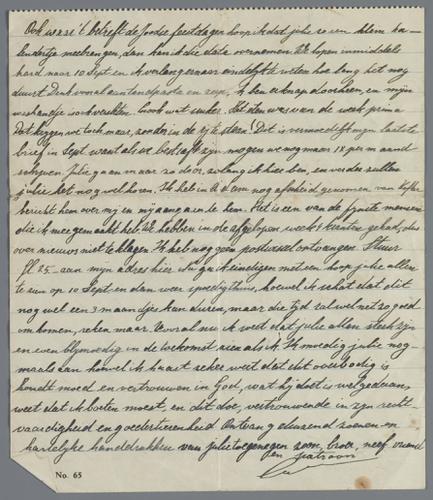 Ook w.s. 't betreft de Joodse feestdagen hoop ik dat julie zo een klein ka-
lendertje meebrengen, dan kan ik die data vernemen. We lopen inmiddels
hard naar 10 Sept en ik verlang ernaar eindelijk te weten hoe lang het nog
duurt. Denk vooral aan tandpasta en zeep, ik ben er knap doorheen, en mijn
is ook versleten. Gook wat suiker. Het eten was van de week prima
Dat zeggen we toch maar, zonder in de rij te staan! Dit is vermoedelijk mijn laatste
brief in Sept. want als we bestraft zijn mogen we nog maar 1 x per maand
schrijven. Julie gaan maar zo door, zolang ik hier ben, en verder zullen
julie het nog wel horen. Ik heb in A'dam nog afscheid genomen van
bericht hem over mij en mijn aan hem. Het is een van de fijnste mensen
die ik meegemaakt heb. We hebben in de afgelopen week 4 kranten gehad, dus
over nieuws niet te klagen. Ik heb nog geen postwissel ontvangen. Stuur
fl 25.- aan mijn adres hier. Nu ga ik eindigen met een hoop julie allen
te zien op 10 Sept en dan weer spoedig thuis, hoewel ik schat dat dit
nog wel een 3 maandjes kan duren, maar die tijd zal wel net zo goed
om komen, reken maar. Vooral nu ik weet dat julie allen sterk zijn
en even blijmoedig in de toekomst zien als ik. Ik moedig julie nog-
maals aan hoewel ik haast zeker weet dat dit overbodig is
houdt moed en vertrouwen in God, wat hij doet is welgedaan,
weet dat ik boeten moest, en dit doe, vertrouwende in zijn recht-
vaardigheid en goedertierenheid. Ontvang duizend zoenen en
hartelijke handdrukken van julie toegenegen zoon, broer, neef, vriend
en patroon
No. 65